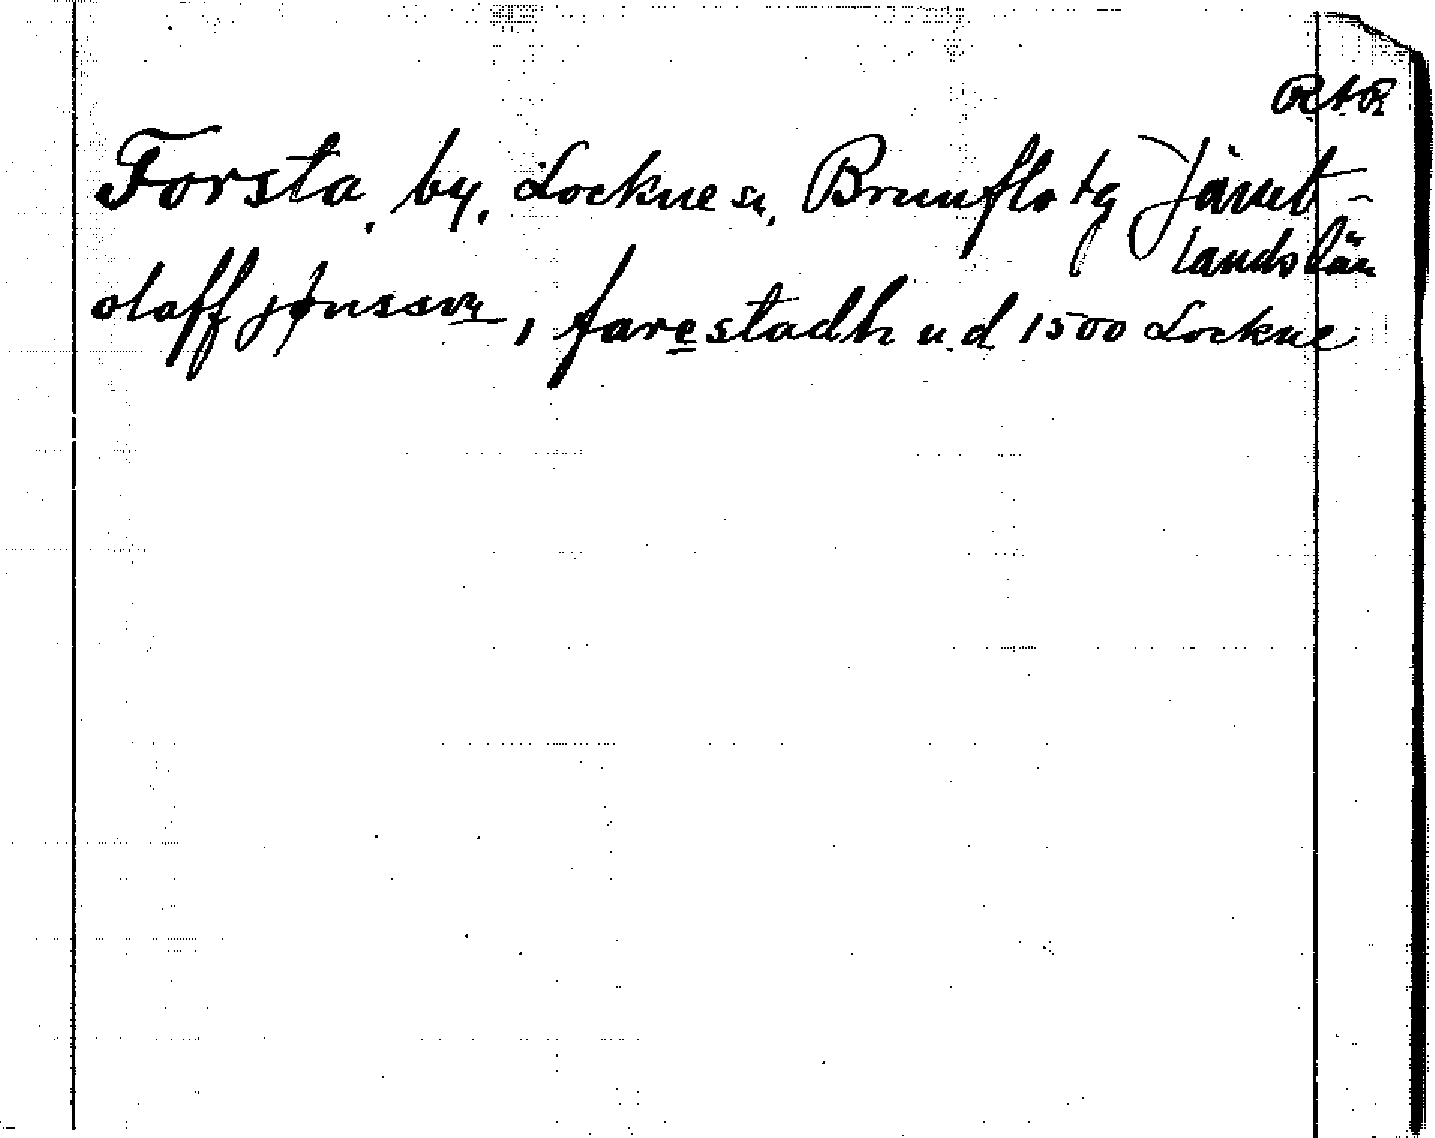 RAR
Forsta, by, Lockne sn, Brunflo tg Jämt-
lands län
olaff jønsson, i farestadh u.d 1500 Lockne